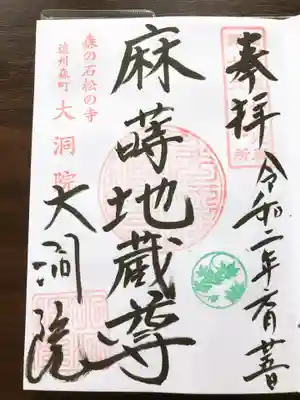 奉拝
令和二年
麻蒔地蔵尊
森の石松の寺
遠州森町
大洞院
大洞院